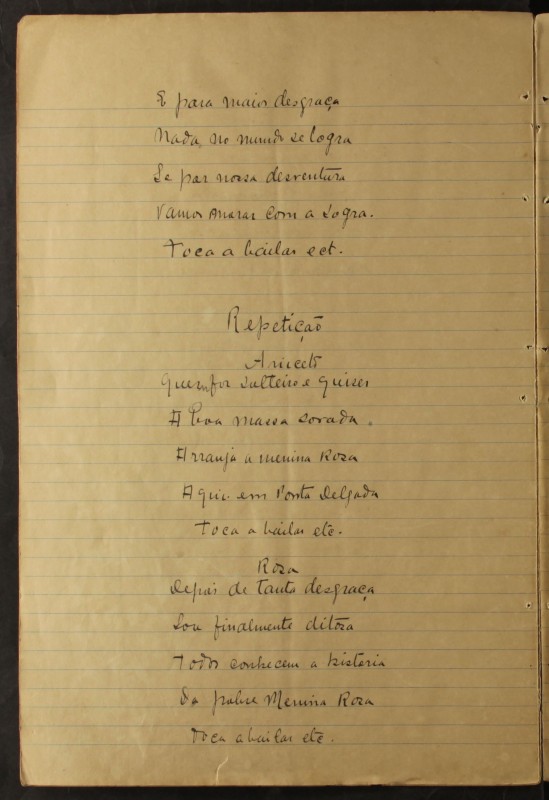 E para maior desgraça
Nada, no mundo se logra
Se por nossa desventura
Vamos amar com a Sogra.
Toca a bailar ect.
Repetição
Aniceto
Quem for Solteiro e quizer
A boa massa sovada.
Arranja a menina Rosa
Aqui em Ponta Delgada
Toca a bailar etc.
Rosa
Depois de tanta desgraça
Sou finalmente ditosa
Todos conhecem a historia
Da pobre Menina Rosa
Toca a bailar etc.